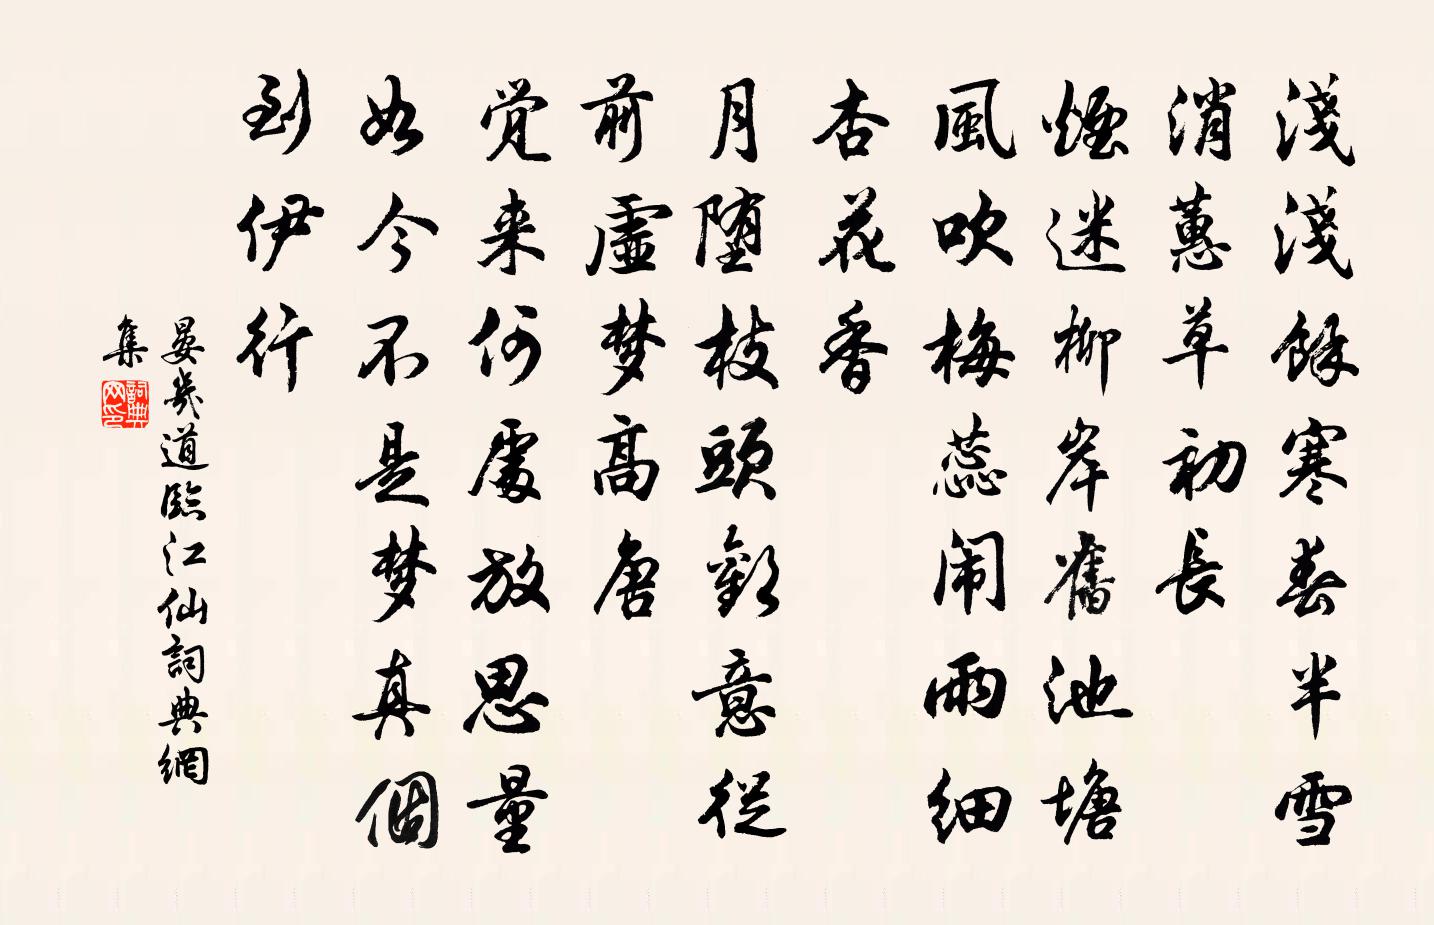 淺淺餘寒春半雪
消蕙草初長
煙迷柳岸舊池塘
風吹梅蕊闹雨細
杏花香
月堕枝頭歡意從
前虛梦高唐
覺来何處放思量
如今不是梦真個
到伊行
晏幾道臨江仙詞典網
集
詞典
网印